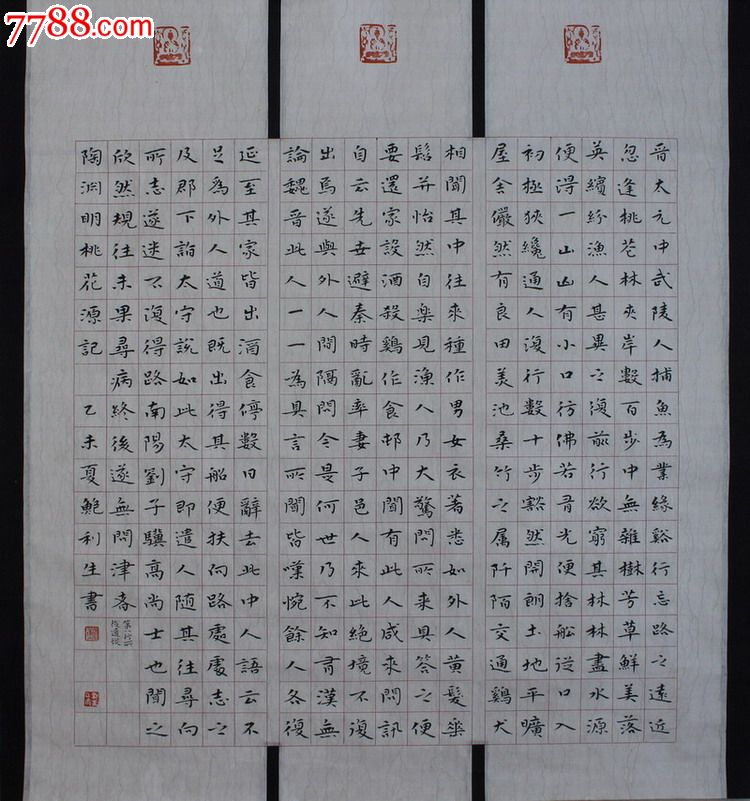 7788.com
晋太元中武陵人捕魚為業緣谿行忘路之遠近
忽逢桃花林夾岸數百步中無雜樹芳草鮮美落
英繽紛漁人甚異之復前行欲窮其林林盡水源
便得一山山有小口彷佛若有光便捨舩從口入
初極狹纔通人復行數十步豁然開朗土地平曠
屋舍儼然有良田美池桑竹之属阡陌交通鷄犬
相聞其中往來種作男女衣著悉如外人黃髮垂
髫并怡然自樂見漁人乃大驚問所来具答之便
要還家設酒殺鷄作食邨中聞有此人咸來問訊
自云先世避秦時亂率妻子邑人來此絕境不復
出焉遂與外人間隔問今是何世乃不知有漢無
論魏晉此人一一為具言所聞皆嘆惋餘人各復
延至其家皆出酒食停數日辭去此中人語云不
足為外人道也既出得其船便扶向路處處志之
及郡下詣太守說如此太守即遣人随其往尋向
所志遂迷不復得路南陽劉子驥高尚士也聞之
欣然規往未果尋病終後遂無問津者
陶淵明桃花源記 乙未夏鮑利生書